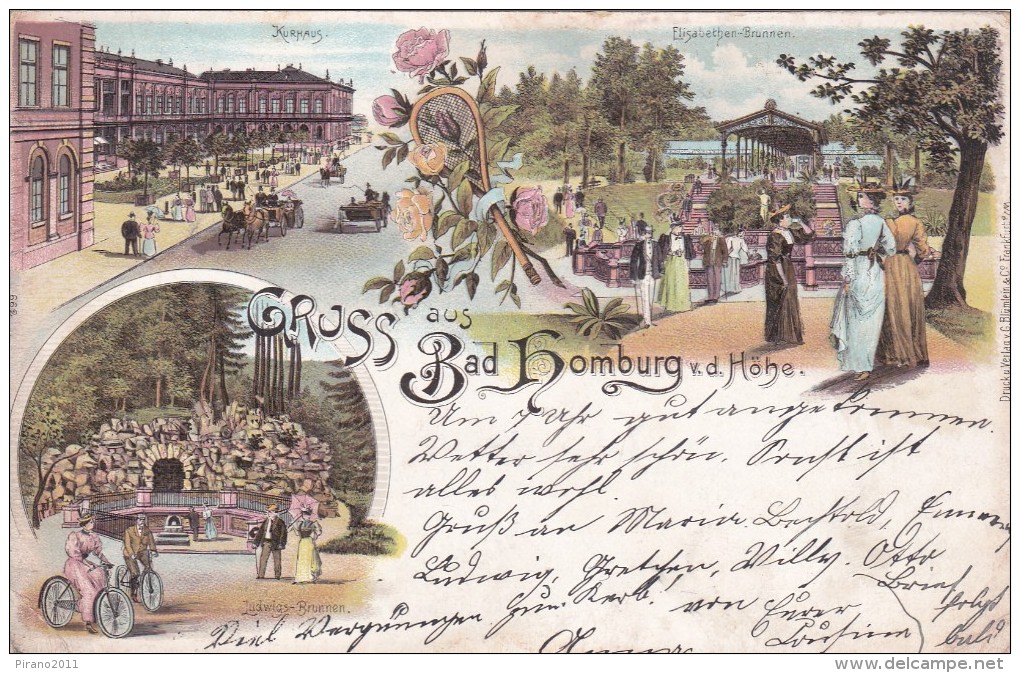 KURHAUS.
Elisabethen-Brunnen.
GRUSS aus
Bad Homburg v. d. Höhe.
Ludwigs-Brunnen.
Druck u. Verlag v. C. Blümlein & Co. Frankfurt a/M.
Um 7 Uhr gut angekommen.
Wetter sehr schön. Sonst ist
alles wohl.
Gruß an Maria. Bechtold,
Ludwig, Gretchen, Willy. Otto
Viel Vergnügen zum Kerb! von Eurer
Brief folgt
bald
Pirano2011
www.delcampe.net